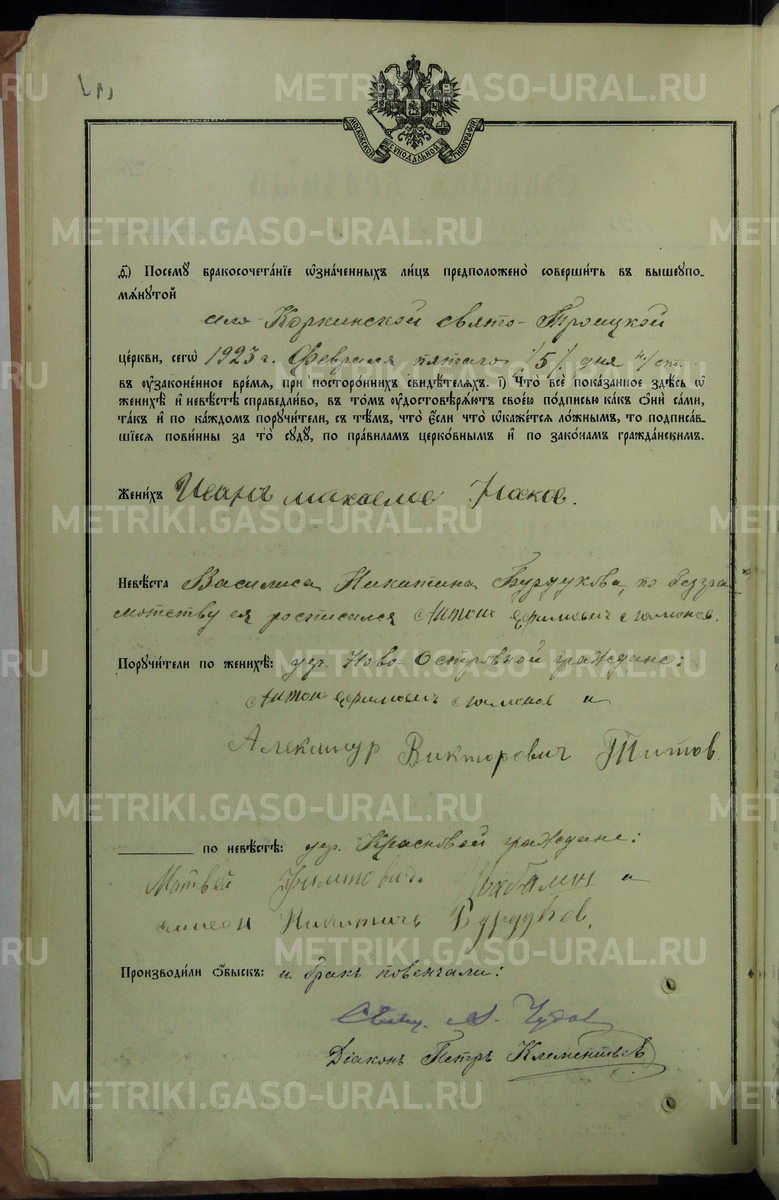 МОСКОВСКОЙ СѴНОДАЛЬНОЙ ТИПОГРАФІИ
Ѳ) Посемꙋ бракосочета́нїе ѡзна́ченныхъ ли́цъ предположено̀ соверши́ть въ вышеупо-
мѧ́нутой
Коркинской свято-Троицкой
це́ркви, сегѡ̀ 1923 г. Февраля пятаго /5/ дня н/ст.
въ ᲂу҆зако́ненное вре́мѧ, при посторо́ннихъ свидѣ́телѧхъ. і҃) Что̀ всѐ пока́занное здѣ́сь ѡ҆
женихѣ̀ и҆ невѣ́стѣ справедли́во, въ то́мъ ᲂу҆достовѣрѧ́ютъ свое́ю по́дписью ка́къ ѻ҆нѝ са́ми,
та́къ и҆ по ка́ждомъ поручи́тели, съ тѣ́мъ, что̀ є҆́сли что̀ ѡ҆ка́жетсѧ ло́жнымъ, то подписа́в-
шїесѧ пови́нны за то̀ судꙋ̀, по пра́виламъ церко́внымъ и҆ по зако́намъ гражда́нскимъ.
Жени́хъ Иванъ Усков.
Невѣ́ста Василиса Никитина Бурдукова, по безгра
мотству ея росписался Антон Ефимович
Поручи́тели по женихѣ̀: дер. Ново-Островной граждане:
Антон Ефимович и
Александр Викторович Титов.
по невѣ́стѣ: дер. Красновой граждане:
Матвей и
Никитичь Бурдуков,
Производи́ли ѻ҆́быскъ: и бракъ повенчали:
Свящ. А. Чудов
Діаконъ Петръ Клементьев
METRIKI.GASO-URAL.RU